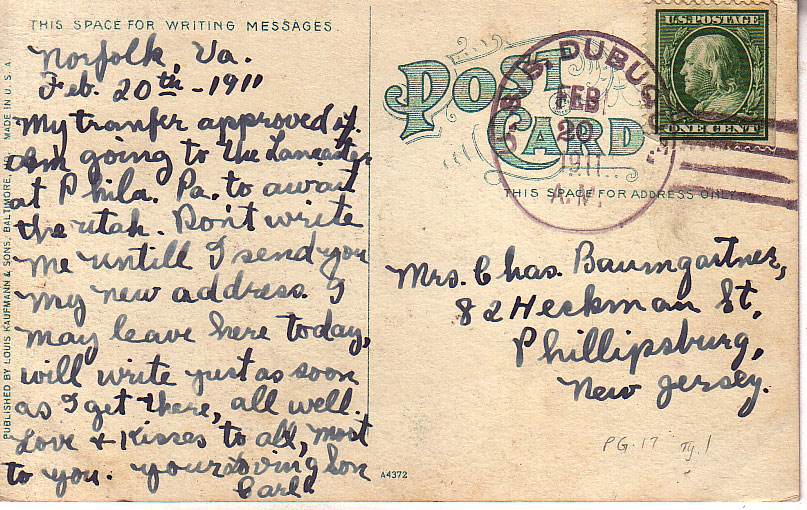 THIS SPACE FOR WRITING MESSAGES.
Norfolk, Va.
Feb. 20th - 1911
My tranfer approved of.
Am going to the Lancaster
at Phila. Pa. to await
the utah. Don't write
me untill I send you
my new address. I
may leave here today,
will write just as soon
as I get there, all well.
Love & Kisses to all, most
to you. your loving Son
Carl.
PUBLISHED BY LOUIS KAUFMANN & SONS, BALTIMORE, MD. MADE IN U.S.A.
POST CARD
U.S. POSTAGE
ONE CENT
U.S.S. DUBUQUE
FEB
20
1911
A.M.
THIS SPACE FOR ADDRESS ONLY.
Mrs. Chas. Baumgartner,
82 Heckman St.
Phillipsburg,
New Jersey.
PG-17 Ty.1
A4372